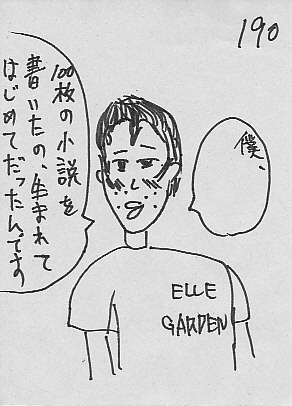 190
僕、
100枚の小説を
書いたの、生まれて
はじめてだったんです
ELLE
GARDEN